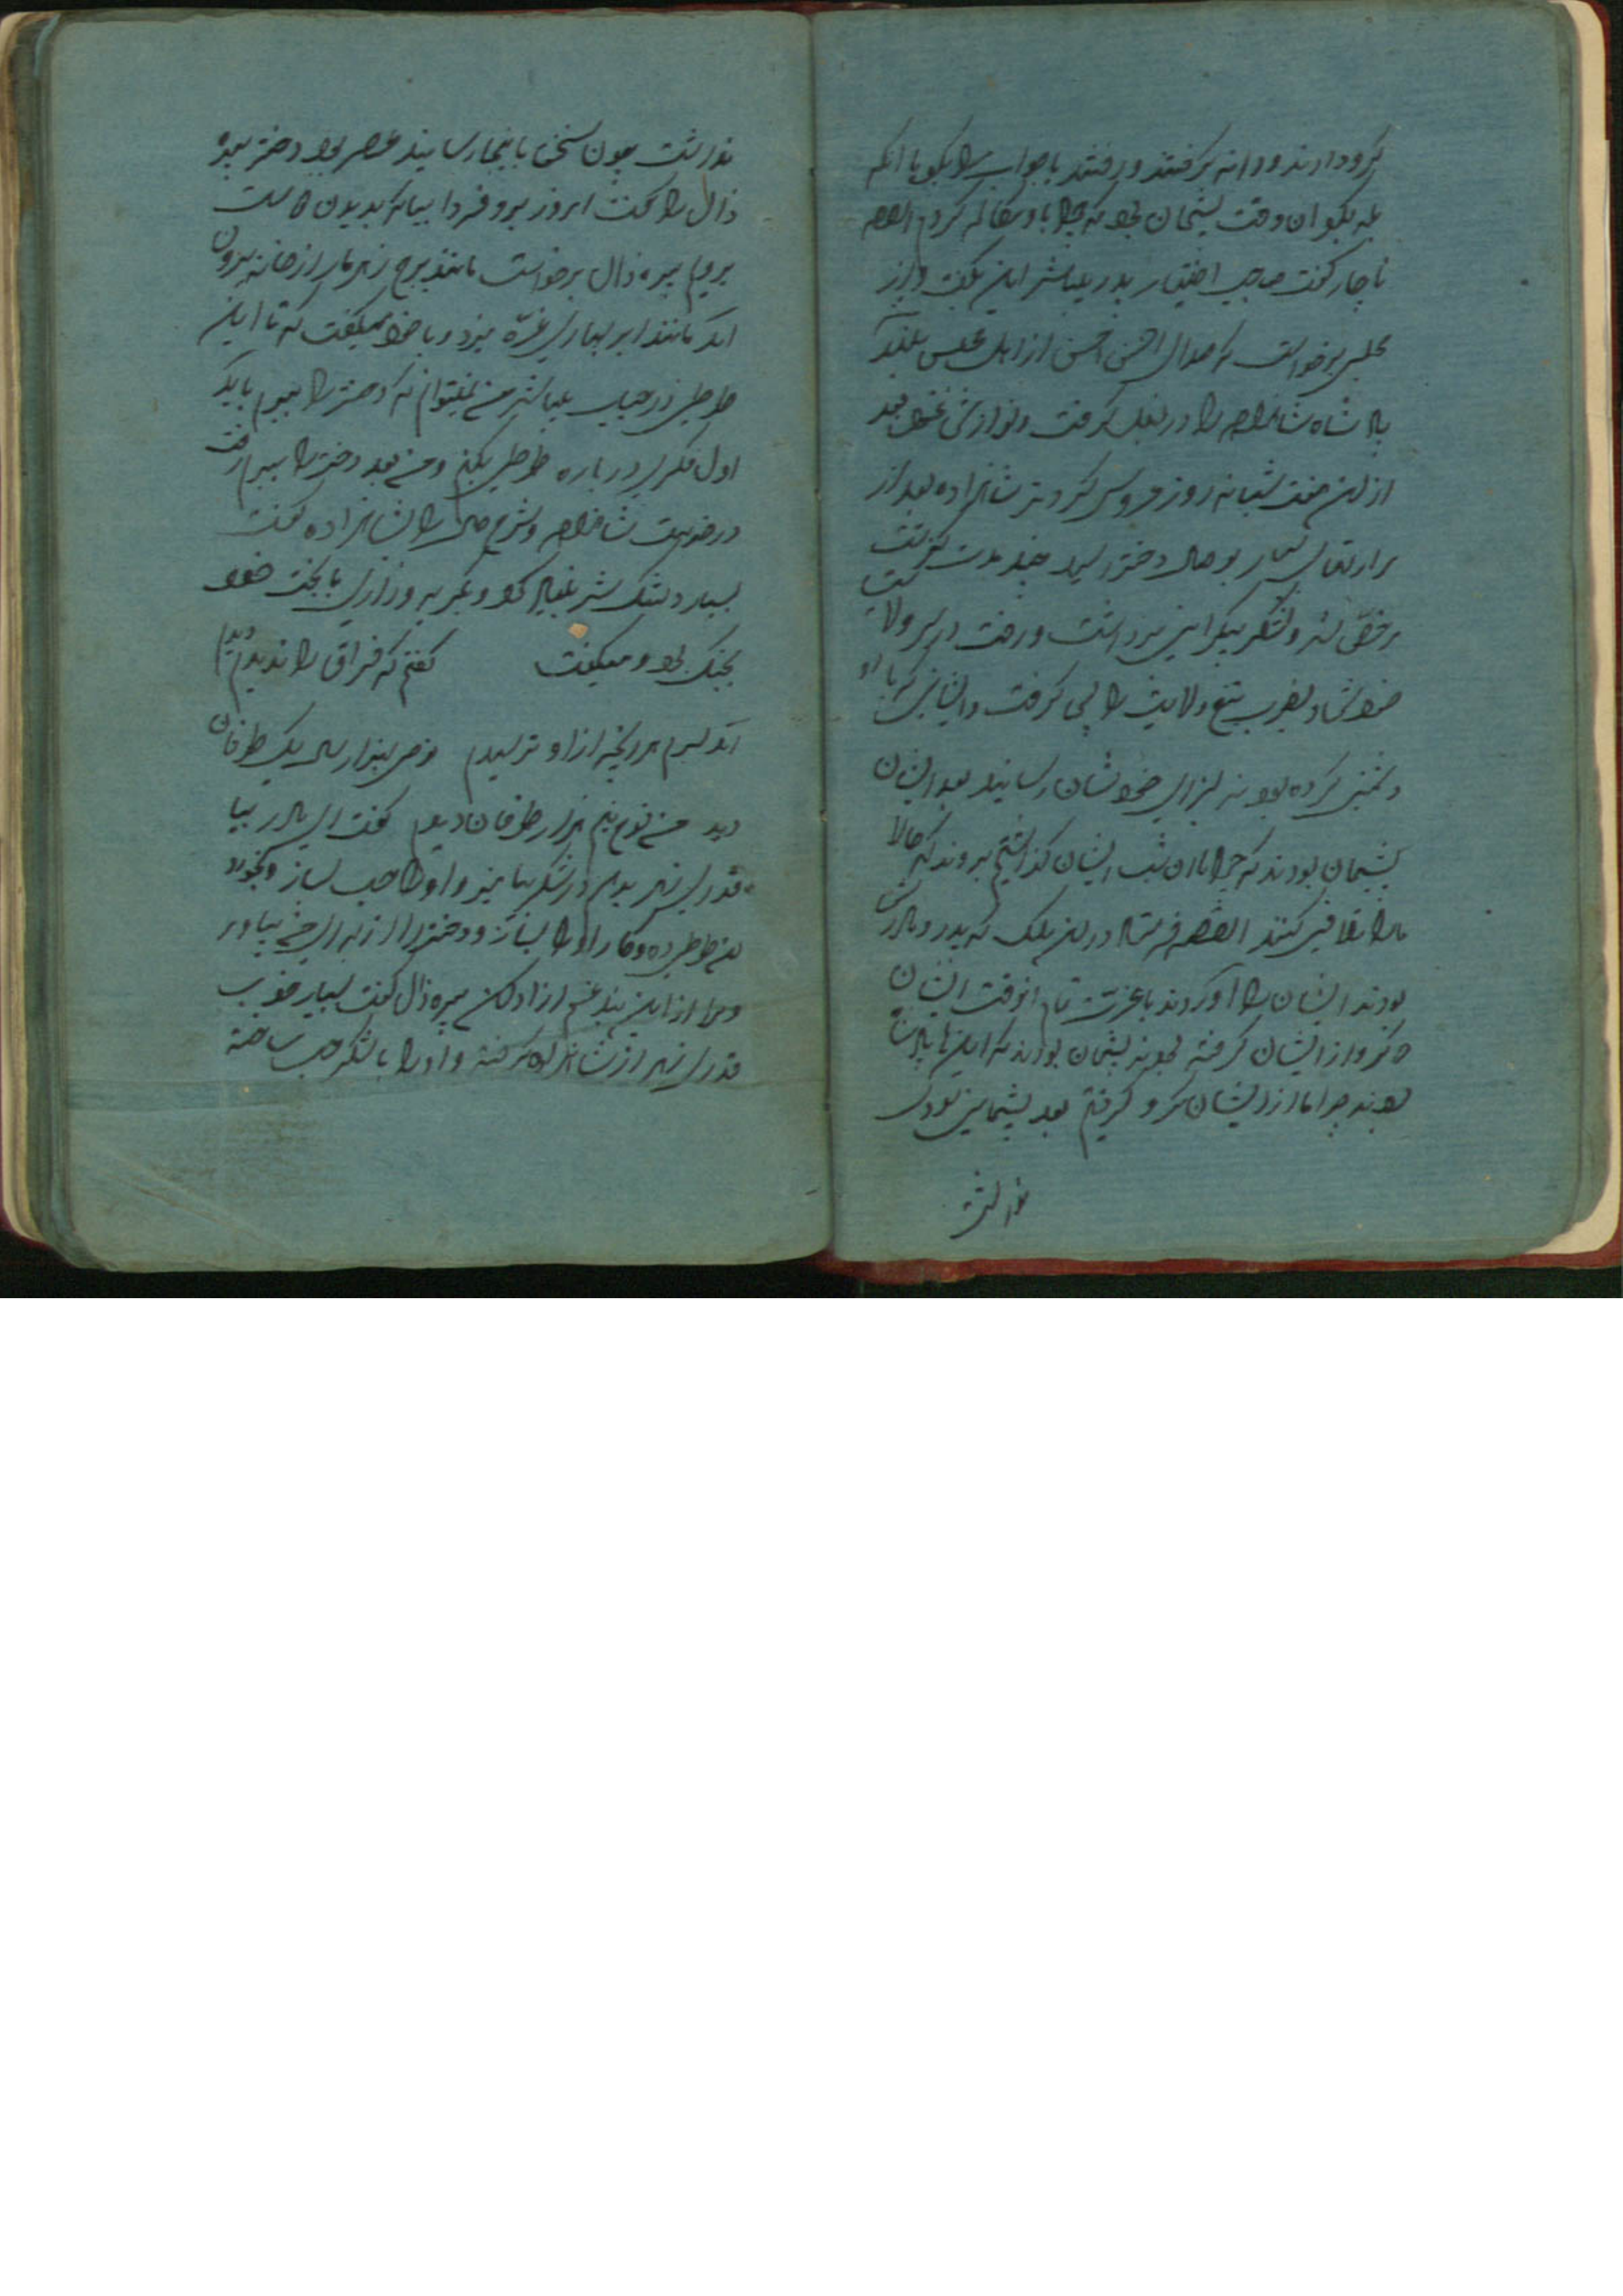 کرو دارند و روانه کرفتند و رفتند یا جواب را بکو یا انکه
بله بکو ان وقت پشیمان بود که چرا با او کردم القصه
ناچار کفت صاحب اختیار پدر میباشد این بکفت و از
مجلس برخواست که صدای احسن احسن از اهل مجلس بلند
پادشاه شاهزاده را در بغل کرفت و نوازش نمود بعد
از ان هفت شبانه روز عروسی کردند شاهزاده بعد از
بوصال دختر رسید چند مدت
مرخص شد و لشکر برداشت و رفت در سر ولایت
خود بضرب تیغ ولایت را پس کرفت و ایشانی که با او
دشمنی کرده بودند بسزای خودشان رسانید بعد ایشان
پشیمان بودند که چرا ما ان شب ایشان کذاشتیم بروند که حالا
ما را تلافی کنند القصه فرستاد در ان ملک که پدر و مادرش
بودند ایشان را آوردند با عزت تمام انوقت ایشان
که کرو از ایشان کرفته بودند پشیمان بودند که اینها پادشاه
بودند چرا ما از ایشان کرو کرفتیم بعد پشیمانی سودی
نداشت
نداشت چون سخن باینجا رسانید عصر بود دختر پیره
ذال را کفت امروز برو فردا بیا که بدیدن
برویم پیره ذال برخواست مانند برج زهرمار از خانه بیرون
آمد مانند ابر بهاری غره میزد و با خود میکفت که تا این
طوطی در حیات میباشد من نمیتوانم که دختر را ببرم باید
اول فکری در باره طوطی بکنم و من بعد دختر را ببرم رفت
در خدمت شاهزاده و شرح حال را بشاهزاده کفت
بسیار دلتنک شد بکریه و زاری با بخت خود
بجنک بود و میکفت کفتم که فراق را نه بینم دیدم
آمد بسرم هر انچه از او ترسیدم نوح بهزار سال یک طوفان
دید من نوح نیم هزار طوفان دیدم کفت ای مادر بیا
قدری زهر بدهم در شکر بیامیز و او را حب بساز و بخورد
ان طوطی ده و کار او را بساز و دختر را از برای من بیاور
و مرا از این بند غم ازاد کن پیره ذال کفت بسیار خوب
قدری زهر از شاهزاده کرفته و او را با شکر حب ساخته